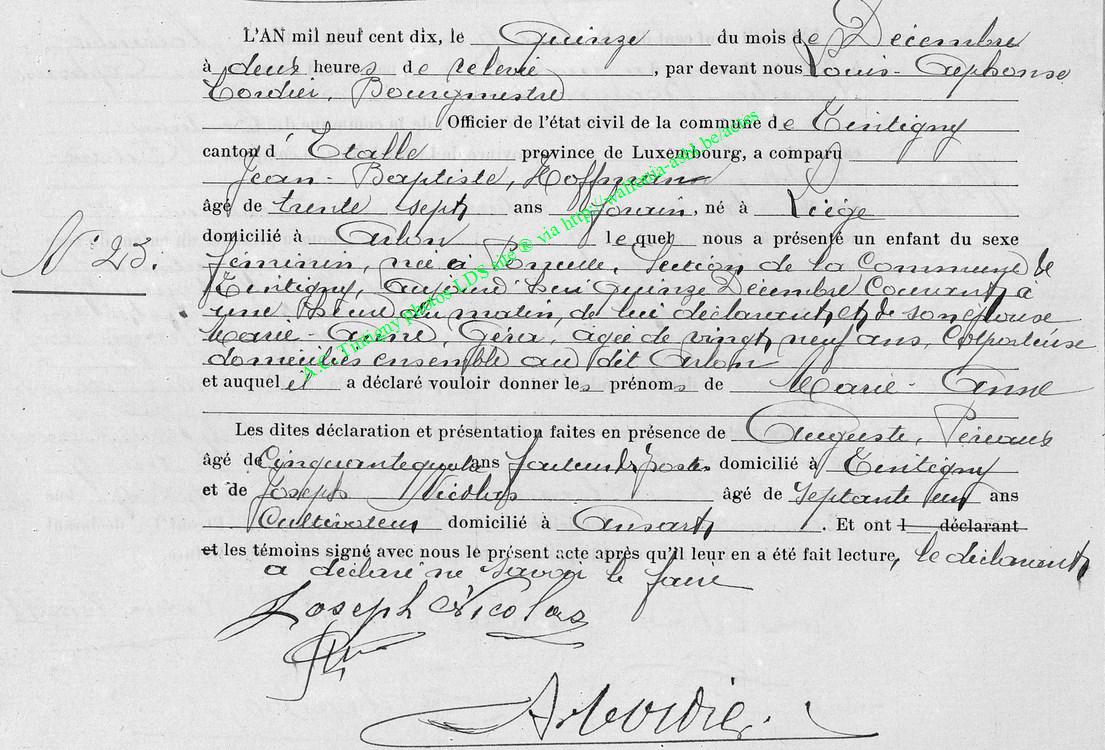 L'AN mil neuf cent dix, le Quinze du mois de Décembre
à deux heures de relevée, par devant nous Louis-Alphonse
Cordier, Bourgmestre
Officier de l'état civil de la commune de Tintigny
canton d'Etalle province de Luxembourg, a comparu
Jean-Baptiste, Hoffmann
âgé de trente sept ans né à Liège
domicilié à Arlon lequel nous a présenté un enfant du sexe
féminin, née à Poncelle, Section de la Commune de
Tintigny, aujourd'hui Quinze Décembre Courant, à
une heure du matin, de lui déclarant et de son épouse
Marie-Anne, Géra, agée de vingt neuf ans, Colporteuse
domiciliés ensemble au dit Arlon
et auquel il a déclaré vouloir donner les prénoms de Marie-Anne
Les dites déclaration et présentation faites en présence de Auguste,
âgé de Cinquante ans facteur des postes domicilié à Tintigny
et de Joseph Nicolas âgé de Septante un ans
Cultivateur domicilié à Ansart. Et ont l déclarant
et les témoins signé avec nous le présent acte après qu'il leur en a été fait lecture, le déclarant
a déclaré ne savoir le faire
N° 23.
Joseph Nicolas
A Cordier.
A.C. Tintigny photos LDS via http://wallonia-asbl.be/actes